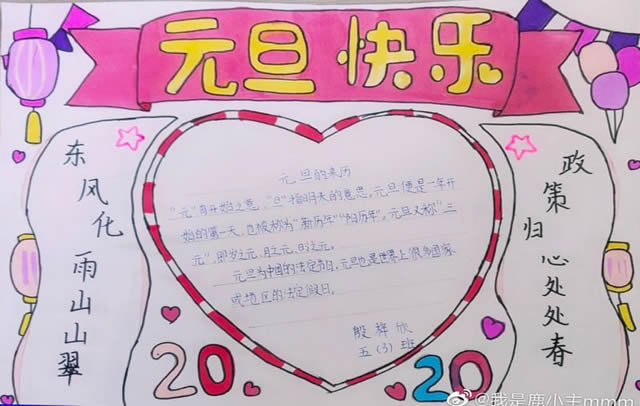 元旦快乐
东风化雨山山翠
政策归心处处春
元旦的来历
"元"有开始之意，"旦"指明天的意思。元旦便是一年开
始的第一天，也被称为"新历年""阳历年"。元旦又称"三
元"，即岁之元、月之元、时之元。
元旦为中国的法定节日，元旦也是世界上很多国家
或地区的法定假日。
殷梓欣
五（3）班
2020
@我是鹿小主mmm